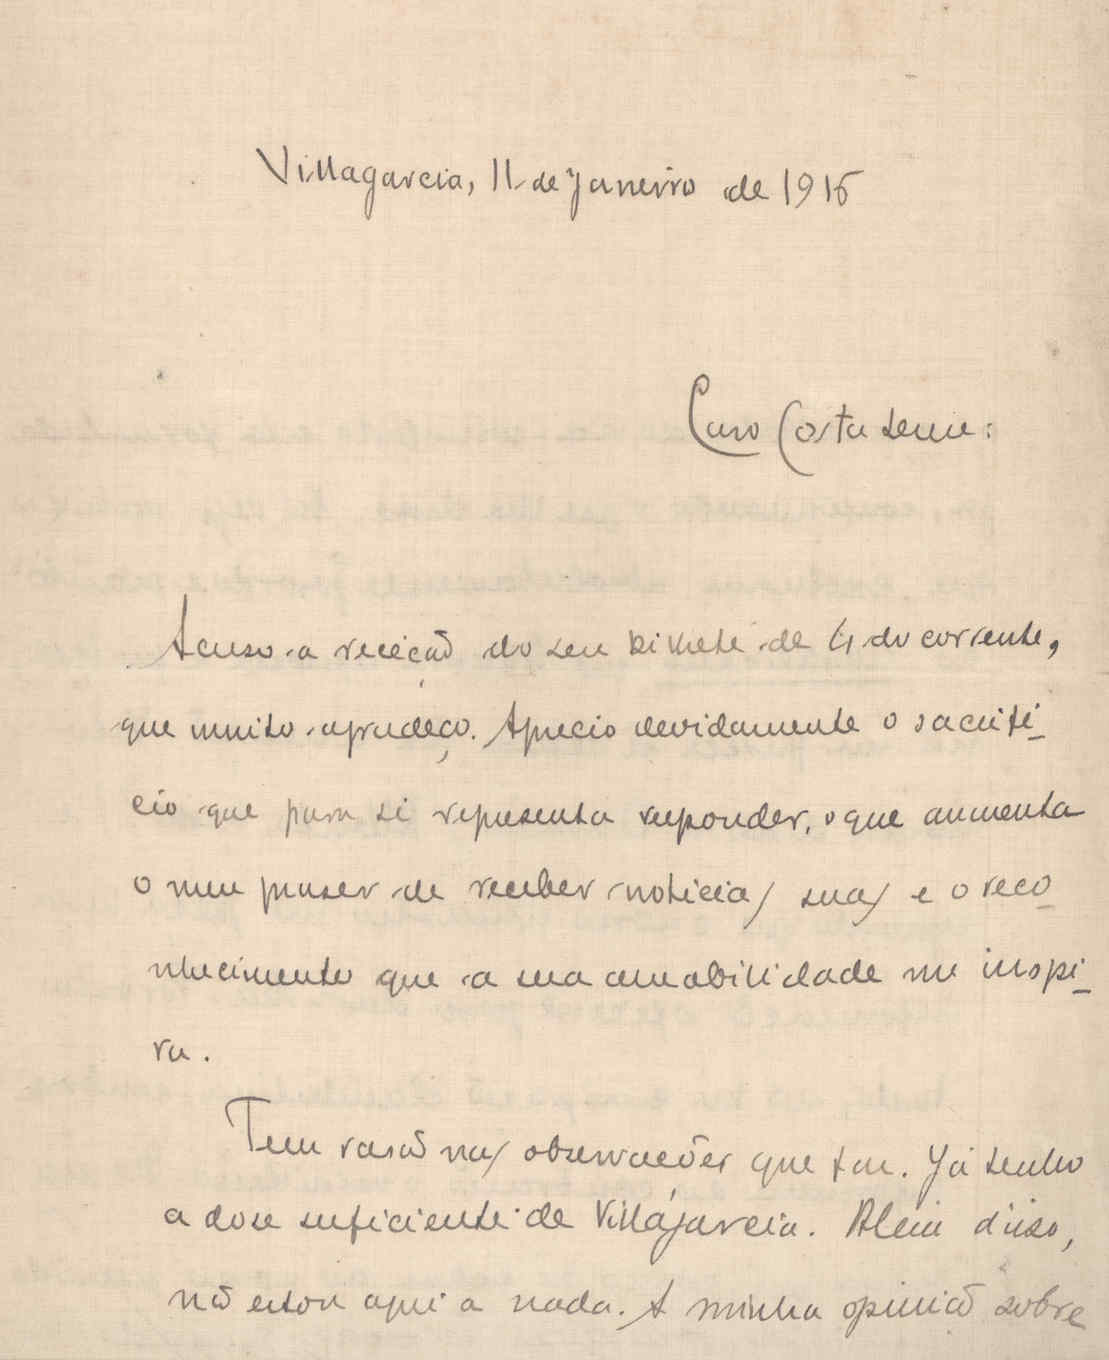 Villagarcia, 11 de Janeiro de 1915
Caro Costa Leme:
Acuso a receção do seu bilhete de 4 do corrente,
que muito agradeço. Aprecio devidamente o sacrifi-
cio que para si representa responder, o que aumenta
o meu praser de receber noticias suas e o reco-
nhecimento que a sua amabilidade me inspi-
ra.
Tem rasão nas observações que faz. Já tenho
a dose suficiente de Villagarcia. Alem d'isso,
não estou aqui a nada. A minha opinião sobre